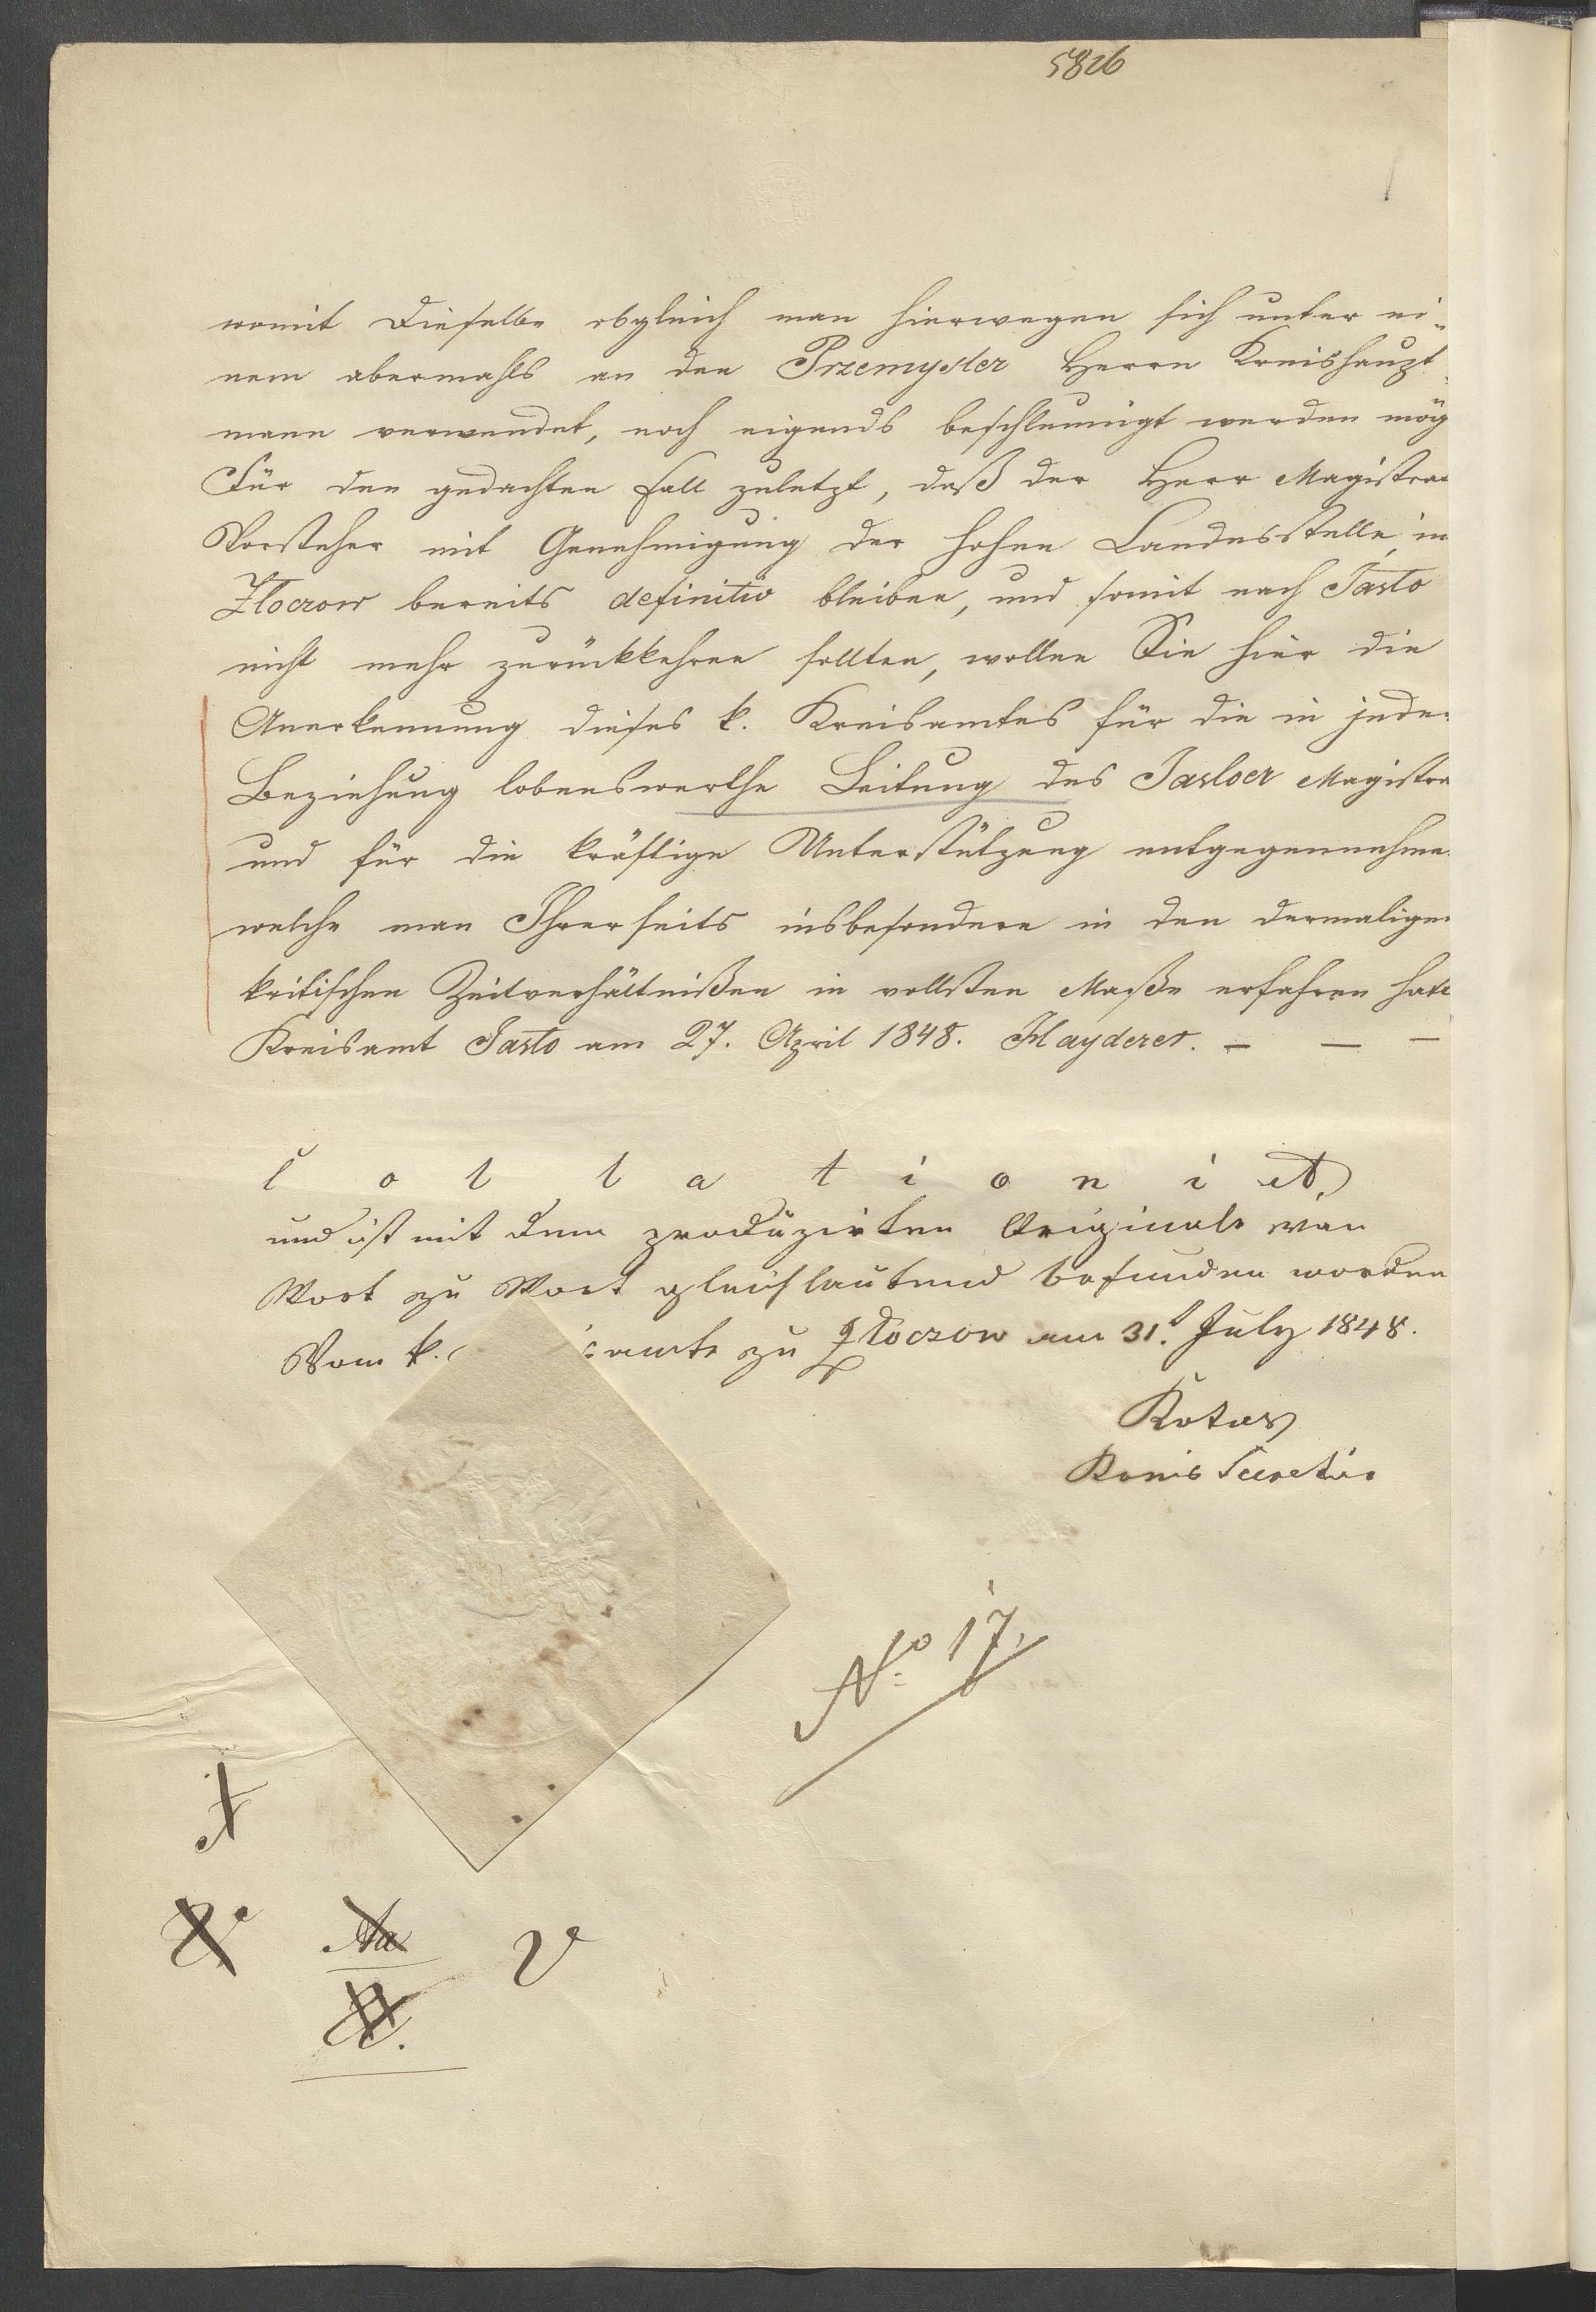 5826
womit dieselbe obgleich man hierwegen sich unter ei-
nem abermahls an den Przemysler Herrn Kreishaupt-
mann verwendet, noch eigends beschleunigt werden mög
Für den gedachten Fall zuletzt, daß der Herr Magistrat
Vorsteher mit Genehmigung der hohen Landesstelle in
Złoczow bereits definitiv bleiben, und somit nach Jasło
nicht mehr zurückkehren sollten, wollen Sie hier die
Anerkennung dieses k. Kreisamtes für die in jeder
Beziehung lobenswerthe Leitung des Jasloer Magistra
und für die kräftige Unterstützung entgegennehme
welche man Ihrerseits insbesondere in den dermaligen
kritischen Zeitverhältnißen in vollsten Maße erfahren hat
Kreisamt Jasło am 27. April 1848. Hayderer. – – –
Collationiet
und ist mit dem produzirten Originale von
Wort zu Wort gleichlautend befunden worden
Vom k. samte zu Złoczow am 31t July 1848.
Kotus
Kreis Secretär
No 17.
Aa
V